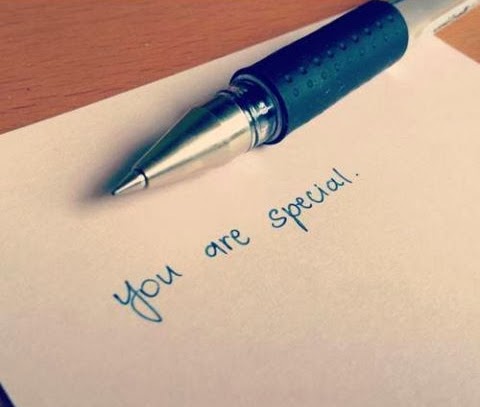 you are special.